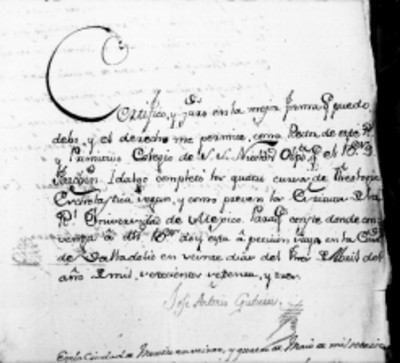 Certifico, y juro en la mejor forma q puedo
debo, y el derecho me permite, como Rector de este Rl
y Primitivo Colegio de S. S. Nicolas Obpo q el Br Dn
Joaqn Idalgo completo los quatro cursos de Theologia
Escholastica segun, y como previenen los de la
Rl Universidad de Mexico. Para q conste donde con
venga á dho Br doy esta á pedimto suyo en la Ciud
de Valladolid en veinte dias del de Abril del
año de mil, setecientos setenta, y tres.
Jose Antonio Gutierrez
En la Ciudad de Mexico en veinte, y de Maio de mil setecien